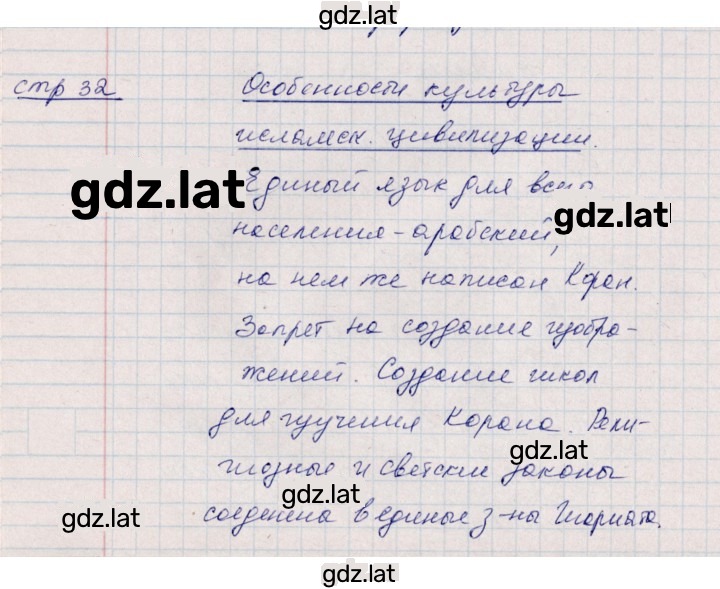 gdz.lat
стр 32
Особенности культуры
исламск. цивилизации.
gdz.lat
Единый язык для всего
gdz.lat
населения - арабский,
на нем же написан Коран.
Запрет на создание изобра-
жений. Создание школ
для изучения Корана. Рели-
gdz.lat
гиозные и светские законы
gdz.lat
соединена в единые з-ны Шариата.
gdz.lat
gdz.lat